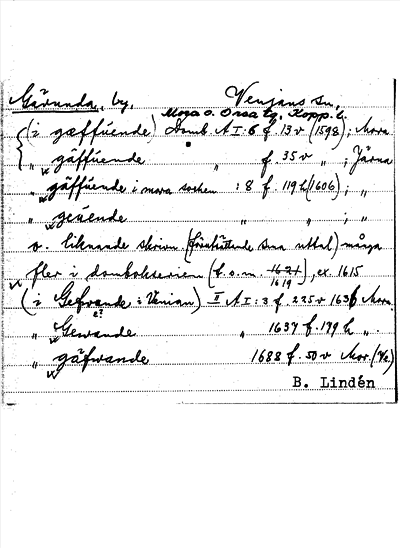 Gävunda, by, Venjans sn,
Mora o. Orsa tg, Kopp. l.
(i gæffúende) Domb. A I: 6 f. 13 v (1598); Mora
" gäffúende " f. 35 v " ; Järna
" gäffúende i mora socken : 8 f. 119 h (1606); "
" geúende " " ; "
o. liknande skrivn. (förutsättande sma uttal) många
fler i domboksserien (t.o.m. 1621 1619), ex. 1615
(i Gefvande i Venian) II A I: 3 f. 225 v 1636 Mora.
e?
" Gewande " 1637 f. 179 h "
" gäfwande 1688 f. 50 v Mor.
B. Lindén